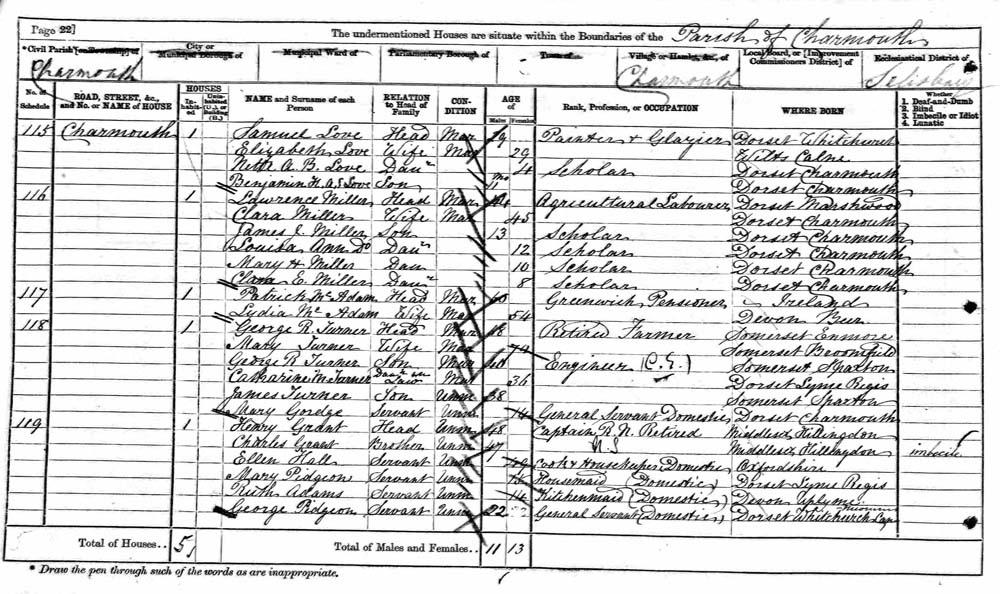 Page 22]
The undermentioned Houses are situate within the Boundaries of the Parish of Charmouth
*Civil Parish [or Township] of
City or Municipal Borough of
Municipal Ward of
Parliamentary Borough of
Town of
Village or Hamlet, &c., of
Local Board, or [Improvement Commissioners District] of
Ecclesiastical District of
Charmouth Charmouth
No. of Schedule
ROAD, STREET, &c., and No. or NAME of HOUSE
HOUSES
Inhabited
Uninhabited (U.), or Building (B.)
NAME and Surname of each Person
RELATION to Head of Family
CONDITION
AGE of
Males Females
Rank, Profession, or OCCUPATION
WHERE BORN
Whether
1. Deaf-and-Dumb
2. Blind
3. Imbecile or Idiot
4. Lunatic
115 Charmouth 1 Samuel Love Head Mar 29 Painter & Glazier Dorset Whitchurch
Elizabeth Love Wife Mar 29 Wilts Calne
A. B. Love Daur 4 Scholar Dorset Charmouth
Benjamin H. A. S Love Son mo 11 Dorset Charmouth
116 1 Lawrence Miller Head Mar Agricultural Labourer Dorset Marshwood
Clara Miller Wife Mar 45 Dorset Charmouth
James E. Miller Son 13 Scholar Dorset Charmouth
Louisa Ann Do Daur 12 Scholar Dorset Charmouth
Mary H Miller Dau 10 Scholar Dorset Charmouth
Clara E. Miller Daur 8 Scholar Dorset Charmouth
117 1 Patrick McAdam Head Mar 60 Greenwich Pensioner Ireland
Lydia Mc Adam Wife Mar 54 Devon Beer
118 1 George R. Turner Head Mar Retired Farmer Somerset Enmore
Mary Turner Wife Mar Somerset Broomfield
George R Turner Son Mar 40 Engineer (C.E.) Somerset Spaxton
Catharine M Turner Daur in Law Mar 36 Dorset Lyme Regis
James Turner Son Unm 38 Somerset Spaxton
Mary Gordge Servant Unm 14 General Servant Domestic Dorset Charmouth
119 1 Henry Grant Head Unm 48 Captain R. N. Retired Middlesex Hillingdon
Charles Grant Brother Unm 47 Middlesex Hillingdon imbecile
Ellen Hall Servant Unm Cook & Housekeeper Domestic Oxfordshire
Mary Pidgeon Servant Unm Housemaid (Domestic) Dorset Lyme Regis
Ruth Adams Servant Unm 14 Kitchenmaid (Domestic) Devon Uplyme
George Pidgeon Servant Unm 22 General Servant (Domestic) Dorset Whitchurch
Total of Houses.. 5 Total of Males and Females.. 11 13
* Draw the pen through such of the words as are inappropriate.